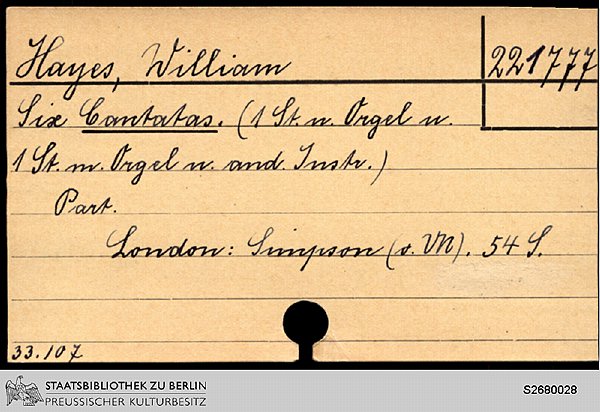 Hayes, William
221777
Six Cantatas. (1 St. u. Orgel u.
1 St. m. Orgel u. and. Instr.)
Part.
London: Simpson (o. VN). 54 S.
33.107
STAATSBIBLIOTHEK ZU BERLIN
PREUSSISCHER KULTURBESITZ
S2680028